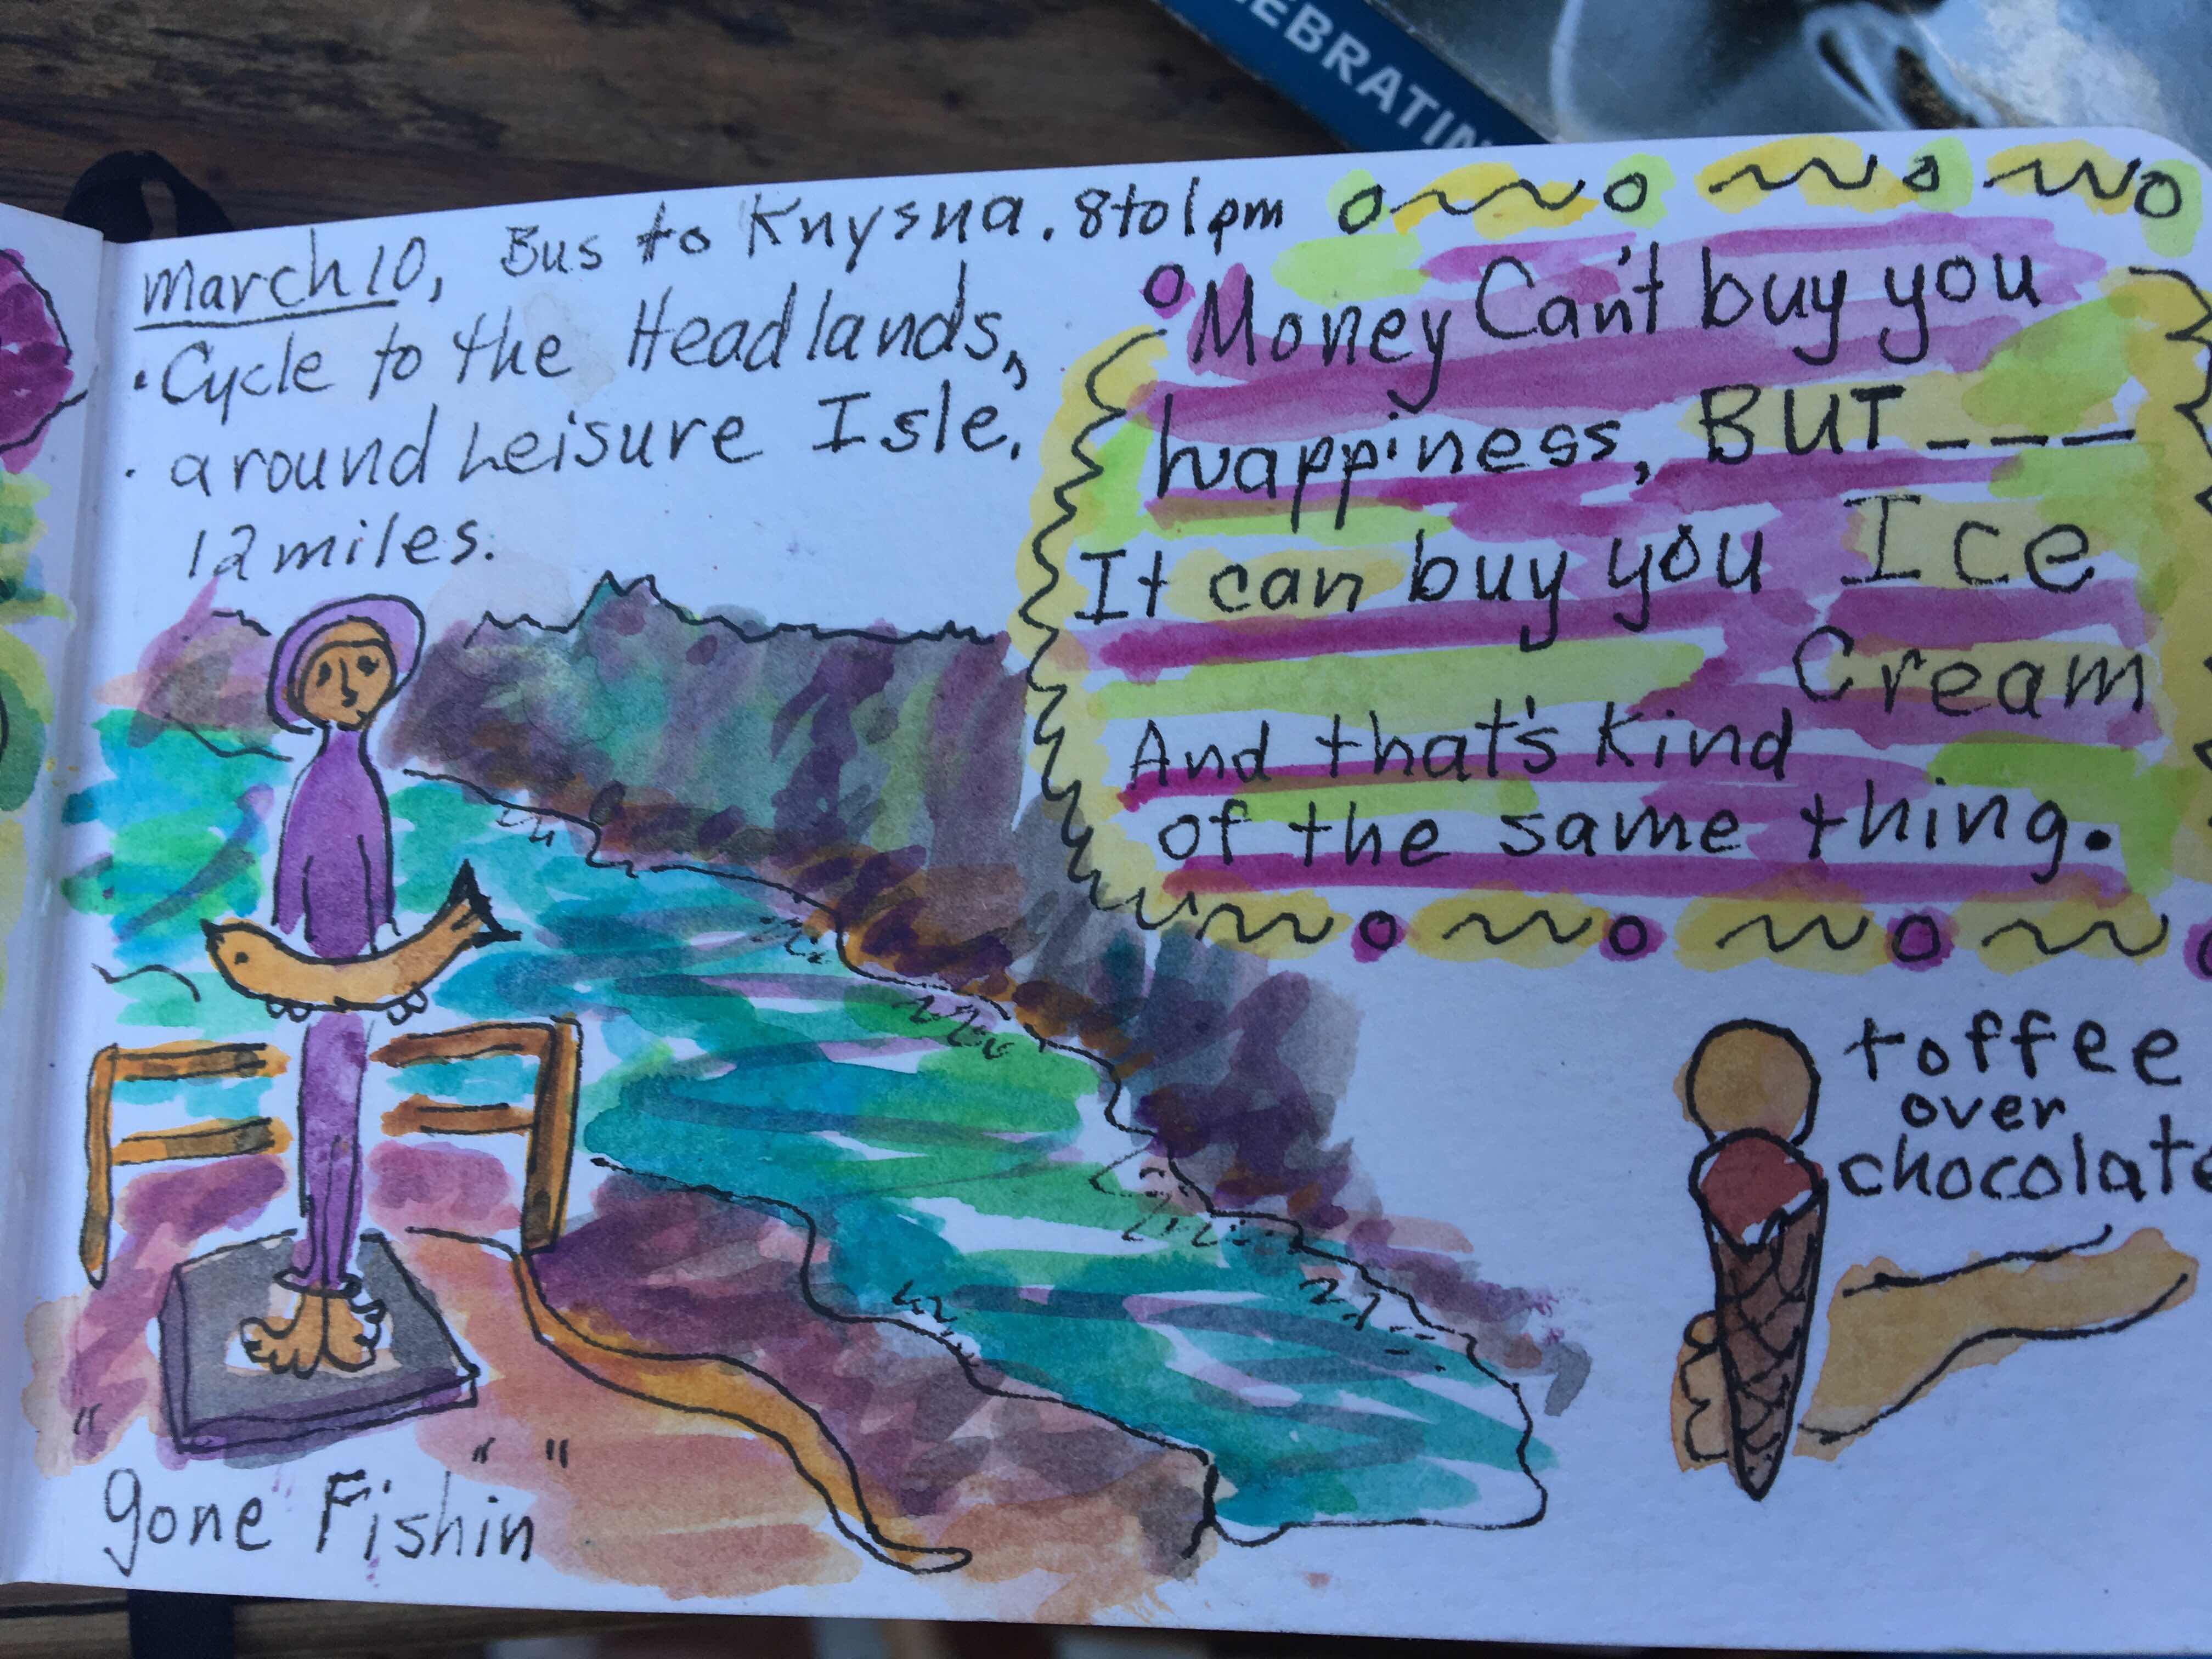 EBRATIN
March 10, Bus to Knysna. 8 to 1 pm
• Cycle to the Headlands,
• around Leisure Isle.
12 miles.
Money Can't buy you
happiness, BUT _ _ _
It can buy you Ice
Cream
And that's kind
of the same thing.
toffee
over
chocolate
" "
"gone Fishin"